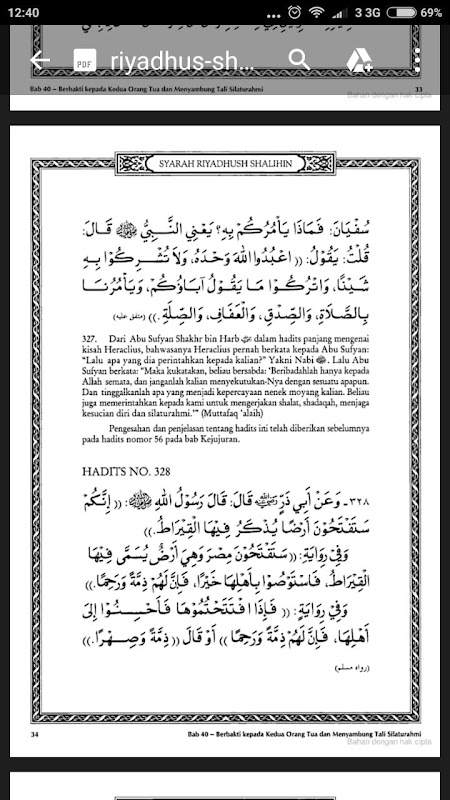 12:40
3 3G 69%
PDF riyadhus-sh...
Bab 40 – Berbakti kepada Kedua Orang Tua dan Menyambung Tali Silaturahmi 33
Bahan dengan hak cipta
SYARAH RIYADHUSH SHALIHIN
سُفْيَانَ: فَمَاذَا يَأْمُرُكُمْ بِهِ؟ يَعْنِي النَّبِيَّ ﷺ قَالَ:
قُلْتُ: يَقُوْلُ: (( اعْبُدُوا اللهَ وَحْدَهُ، وَلَا تُشْرِكُوْا بِهِ
شَيْئًا، وَاتْرُكُوْا مَا يَقُوْلُ آبَاؤُكُمْ، وَيَأْمُرُنَا
بِالصَّلَاةِ، وَالصِّدْقِ، وَالْعَفَافِ، وَالصِّلَةِ. )) (متفق عليه)
327. Dari Abu Sufyan Shakhr bin Harb ؓ dalam hadits panjang mengenai
kisah Heraclius, bahwasanya Heraclius pernah berkata kepada Abu Sufyan:
"Lalu apa yang dia perintahkan kepada kalian?" Yakni Nabi ﷺ. Lalu Abu
Sufyan berkata: "Maka kukatakan, beliau bersabda: 'Beribadahlah hanya kepada
Allah semata, dan janganlah kalian menyekutukan-Nya dengan sesuatu apapun.
Dan tinggalkanlah apa yang menjadi kepercayaan nenek moyang kalian. Beliau
juga memerintahkan kepada kami untuk mengerjakan shalat, shadaqah, menjaga
kesucian diri dan silaturahmi.'" (Muttafaq 'alaih)
Pengesahan dan penjelasan tentang hadits ini telah diberikan sebelumnya
pada hadits nomor 56 pada bab Kejujuran.
HADITS NO. 328
٣٢٨ - وَعَنْ أَبِي ذَرٍّ ﵁ قَالَ: قَالَ رَسُوْلُ اللهِ ﷺ: (( إِنَّكُمْ
سَتَفْتَحُوْنَ أَرْضًا يُذْكَرُ فِيْهَا الْقِيْرَاطُ. ))
وَفِي رِوَايَةٍ: (( سَتَفْتَحُوْنَ مِصْرَ وَهِيَ أَرْضٌ يُسَمَّى فِيْهَا
الْقِيْرَاطُ، فَاسْتَوْصُوْا بِأَهْلِهَا خَيْرًا، فَإِنَّ لَهُمْ ذِمَّةً وَرَحِمًا. ))
وَفِي رِوَايَةٍ: (( فَإِذَا افْتَتَحْتُمُوْهَا فَأَحْسِنُوْا إِلَى
أَهْلِهَا، فَإِنَّ لَهُمْ ذِمَّةً وَرَحِمًا )) أَوْ قَالَ (( ذِمَّةً وَصِهْرًا. ))
(رواه مسلم)
34 Bab 40 – Berbakti kepada Kedua Orang Tua dan Menyambung Tali Silaturahmi
Bahan dengan hak cipta